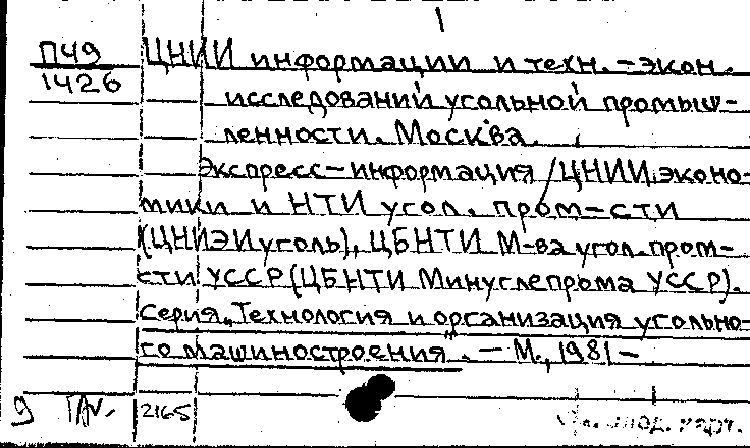 П49
1426
ЦНИИ информации и техн.-экон.
исследований угольной промыш-
ленности. Москва.
Экспресс-информация /ЦНИИ эконо-
мики и НТИ угол. пром-сти
(ЦНИЭИуголь), ЦБНТИ М-ва угол. пром-
сти УССР (ЦБНТИ Минуглепрома УССР).
Серия „Технология и организация угольно-
го машиностроения". — М., 1981 —
2165